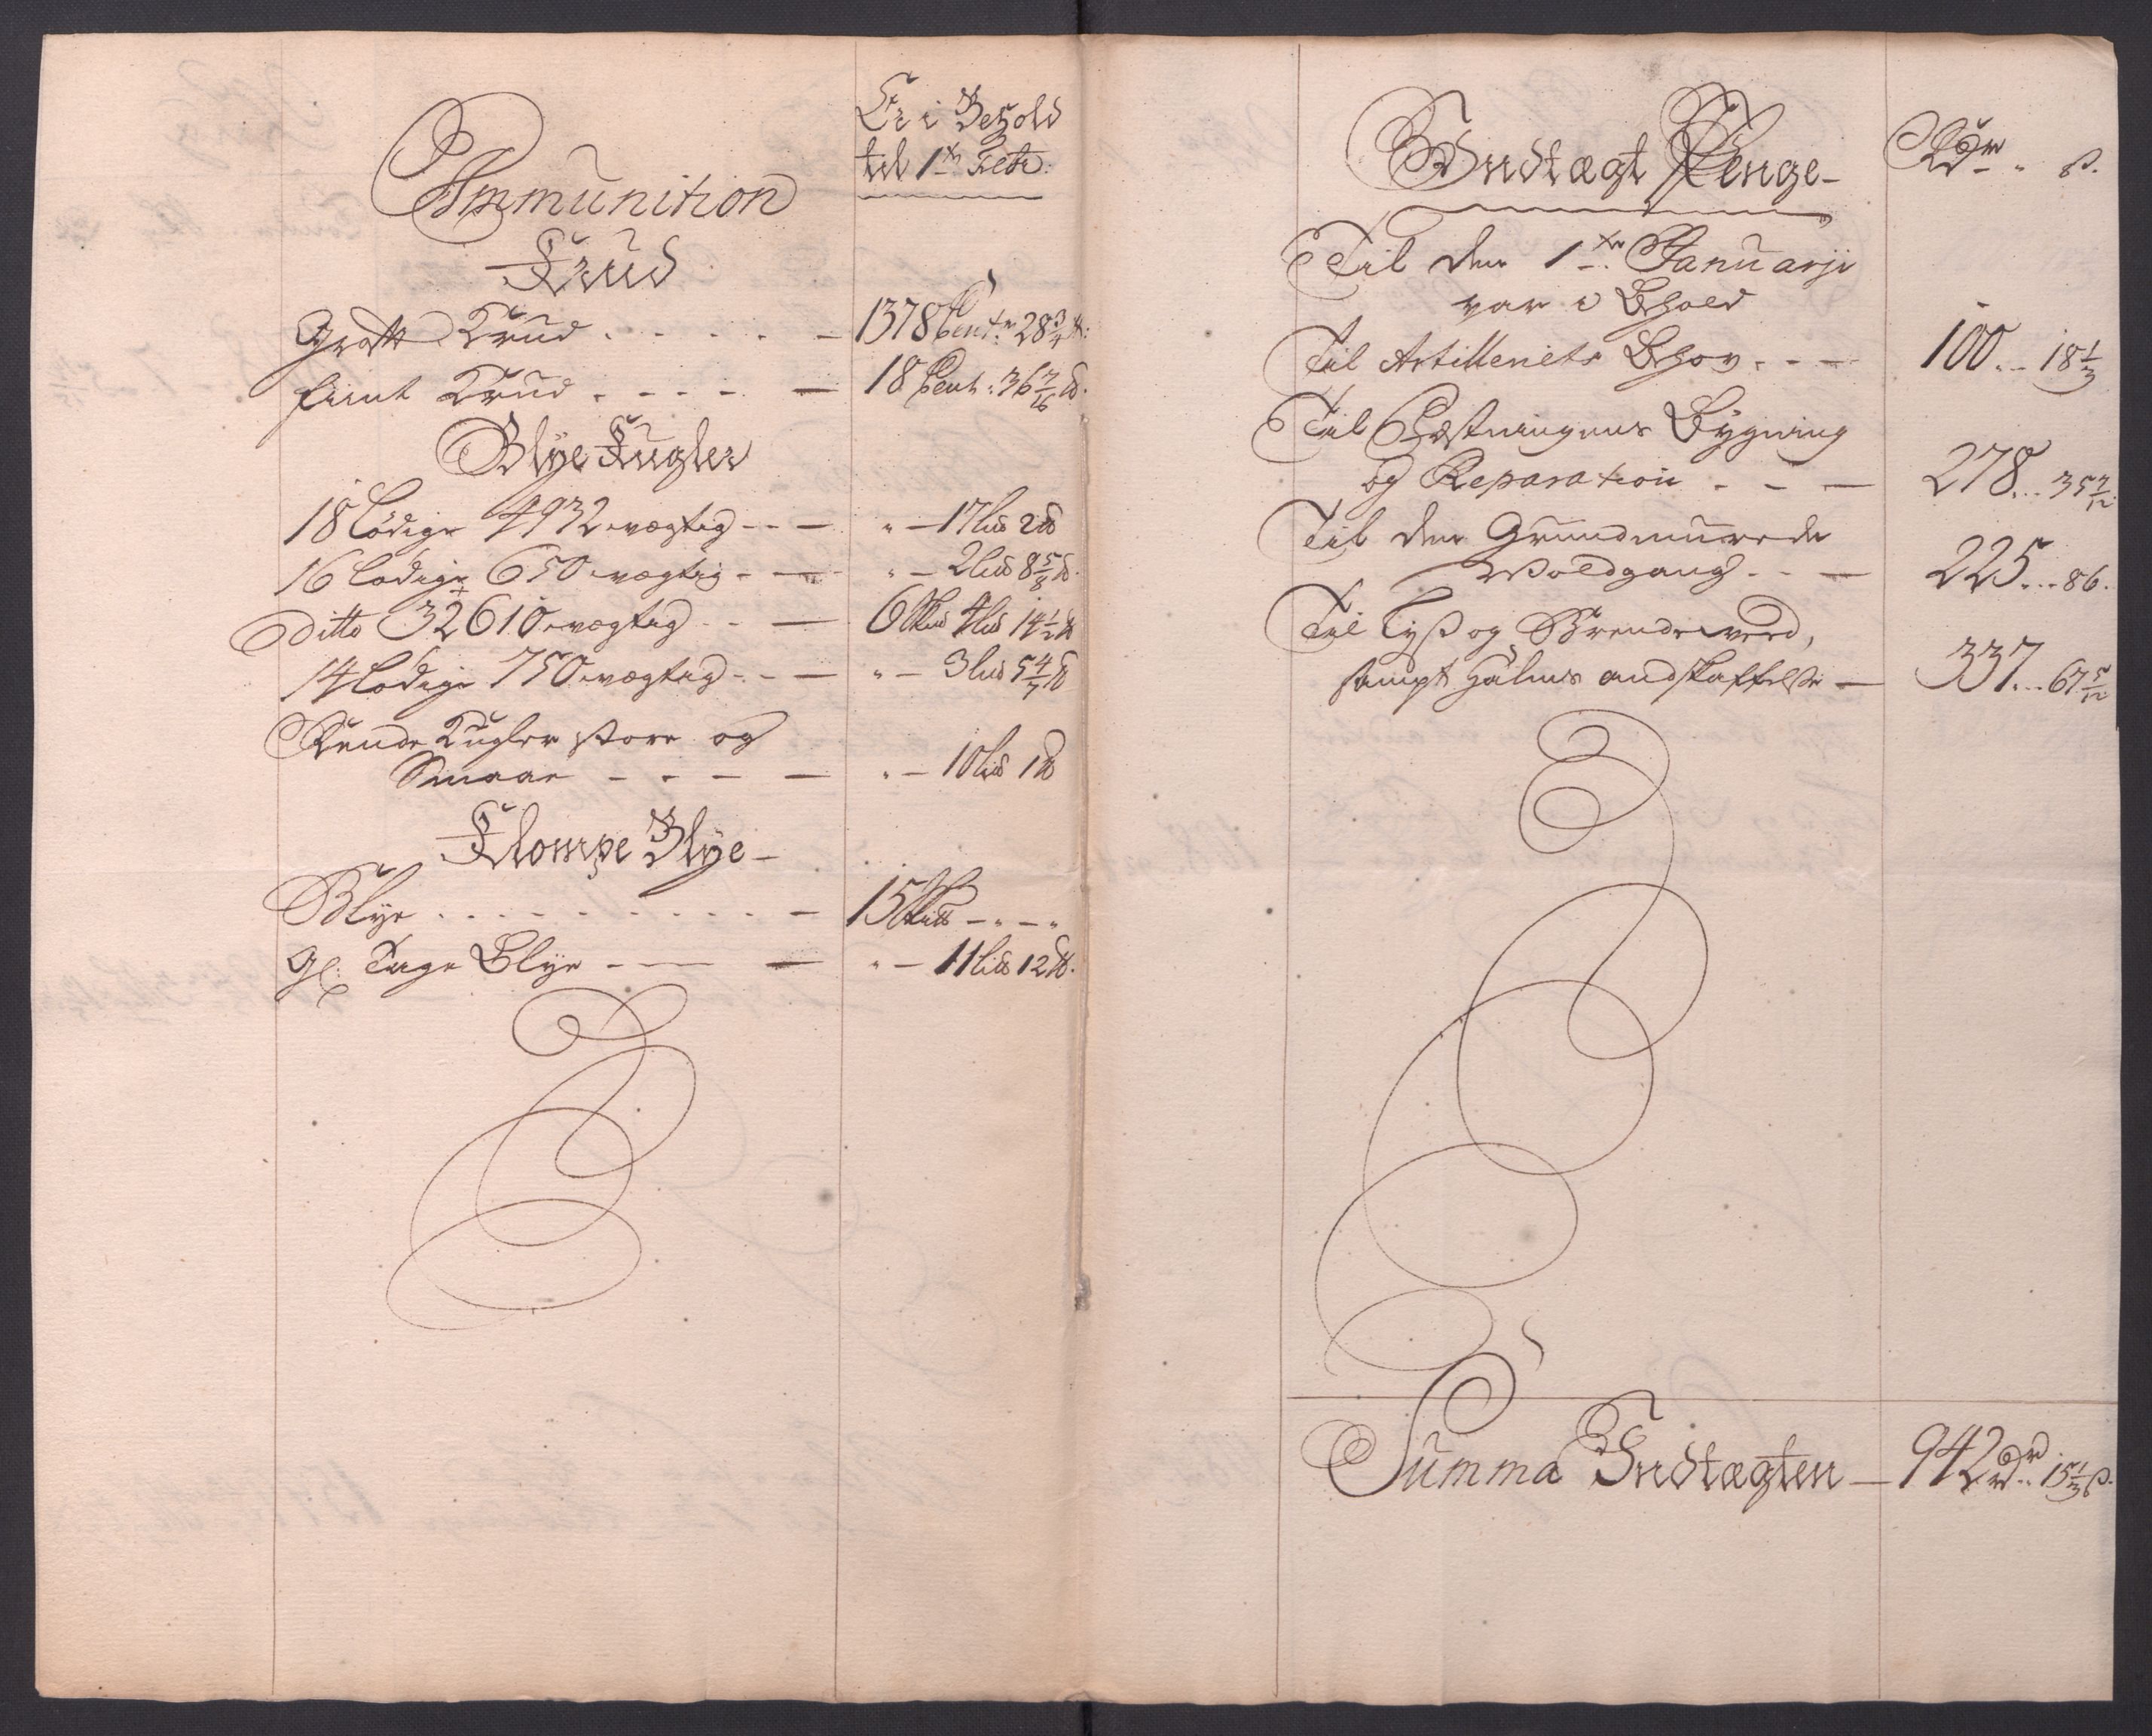 Ammunition
Er i Behold
til 1ste Febr:
Krud
Groft Krud . . . . . — 1378 Centr: 28 3/4 ℔:
fiint Krud . . . . — 18 Cent: 36 7/16 ℔.
Blye Kugler
18 Lödige 4932 vægtig - - — " — 17 Lis℔ 2 ℔
16 Lödige 650 vægtig - — " — 2 Lis℔ 8 5/8 ℔.
Ditto 32610 vægtig - - — 6 Skl℔ 4 Lis℔ 14 1/2 ℔
14 Lödige 750 vægtig - - — " — 3 Lis℔ 5 4/7 ℔
Runde Kugler store og
Smaae - - - — " — 10 Lis℔ 1 ℔
Klompe Blye —
Blye . . . . . . . . . — 15 Skl℔ — " — "
Gl: Tage Blye - — — " — 11 Lis℔ 12 ℔.
Indtægt Penge —
Rdr . ß.
Til den 1ste Januarji
var i Behold
Til Artilleriets Behov . - — 100 . . 18 1/3
Til Fæstningens Bygning
og Reparation . - — 278 . . . 35 7/12
Til den Grundmurede
Voldgang . - — 225 . . . 86.
Til Lyß og Brendeveed,
sampt Halms andskaffelse — 337 . . . 67 5/12
Summa Indtægten — 942 Rdr . . 15 1/3 ß.